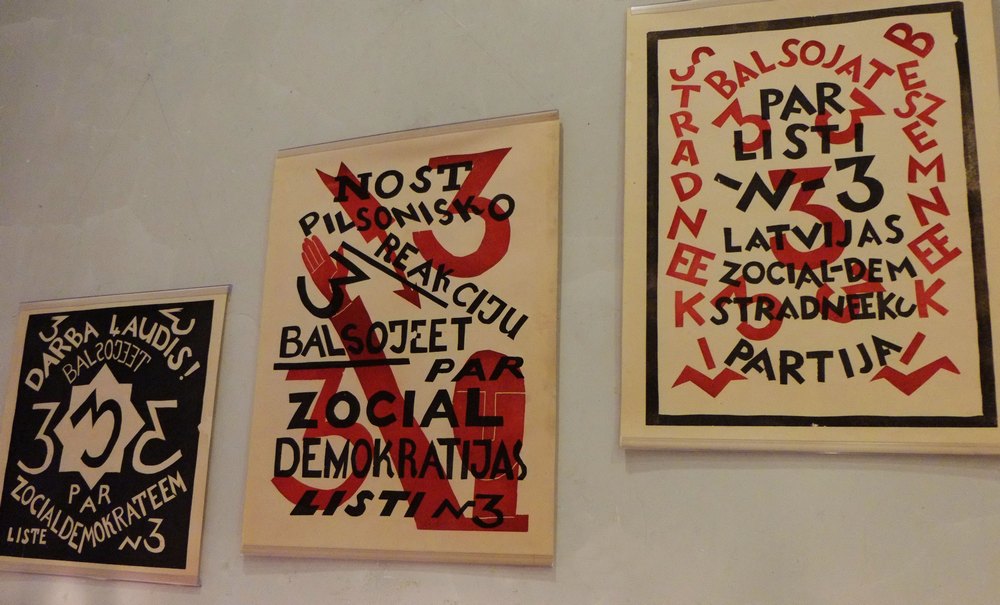 3 3
DARBA ĻAUDIS!
BALSOJEET
3 3 3
PAR
ZOCIALDEMOKRATEEM
LISTE N3
NOST 3
PILSONISKO
REAKCIJU
3
BALSOJEET
PAR
3
ZOCIAL
DEMOKRATIJAS
LISTI N3
STRADNEEKI
BALSOJAT
BESZEMNEEKI
PAR
3 3
LISTI
-N-3
3
LATVIJAS
ZOCIAL-DEM
STRADNEEKU
3 3
PARTIJA